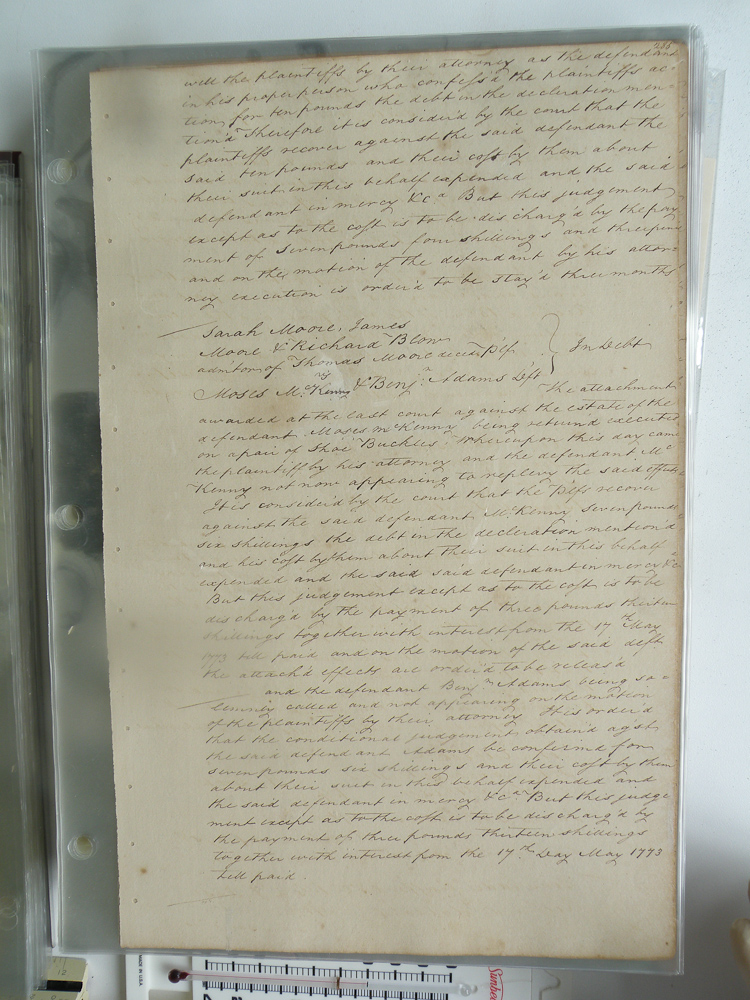 205
well the plaintiffs by their attorney as the defendant
in his proper person who confess'd the plaintiffs ac=
tion, for ten pounds the debt in the declaration men=
tion'd Therefore it is consider'd by the court that the
plaintiffs recover against the said defendant the
said ten pounds and their cost by them about
their suit in this behalf expended and the said
defendant in mercy &c.a But this judgement
except as to the cost is to be discharg'd by the pay
ment of Seven pounds four shillings and threepence
and on the motion of the defendant by his attor=
ney execution is order'd to be stay'd three months
Sarah Moore, James
Moore & Richard Blow
admitors of Thomas Moore deced. Plfs
In Debt
Moses McKenny & Benj.n Adams Dfts
The attachment
awarded at the last court against the estate of the
defendant Moses McKenny being return'd executed
on a pair of Shoe Buckles Whereupon this day came
the plaintiff by his attorney and the defendant Mc
Kenny not now appearing to replevy the said effects
It is consider'd by the court that the Plfs recover
against the said defendant McKenny seven pounds
six shillings the debt in the declaration mention'd
and his cost by them about their suit in this behalf
expended and the said said defendant in mercy &c.a
But this judgement except as to the cost is to be
discharg'd by the payment of three pounds thirteen
shillings together with interest from the 17th May
1773 till paid and on the motion of the said deft
the attach'd effects are order'd to be releas'd
and the defendant Benj.n Adams being so=
lemnly called and not appearing on the motion
of the plaintiffs by their attorney It is order'd
that the conditional judgement obtain'd agst
the said defendant Adams be confirmed for
seven pounds six shillings and their cost by them
about their suit in this behalf expended and
the said defendant in mercy &c.a But this judge
ment except as to the cost is to be discharg'd by
the payment of three pounds thirteen shillings
together with interest from the 17th Day May 1773
till paid.
MADE IN U.S.A.